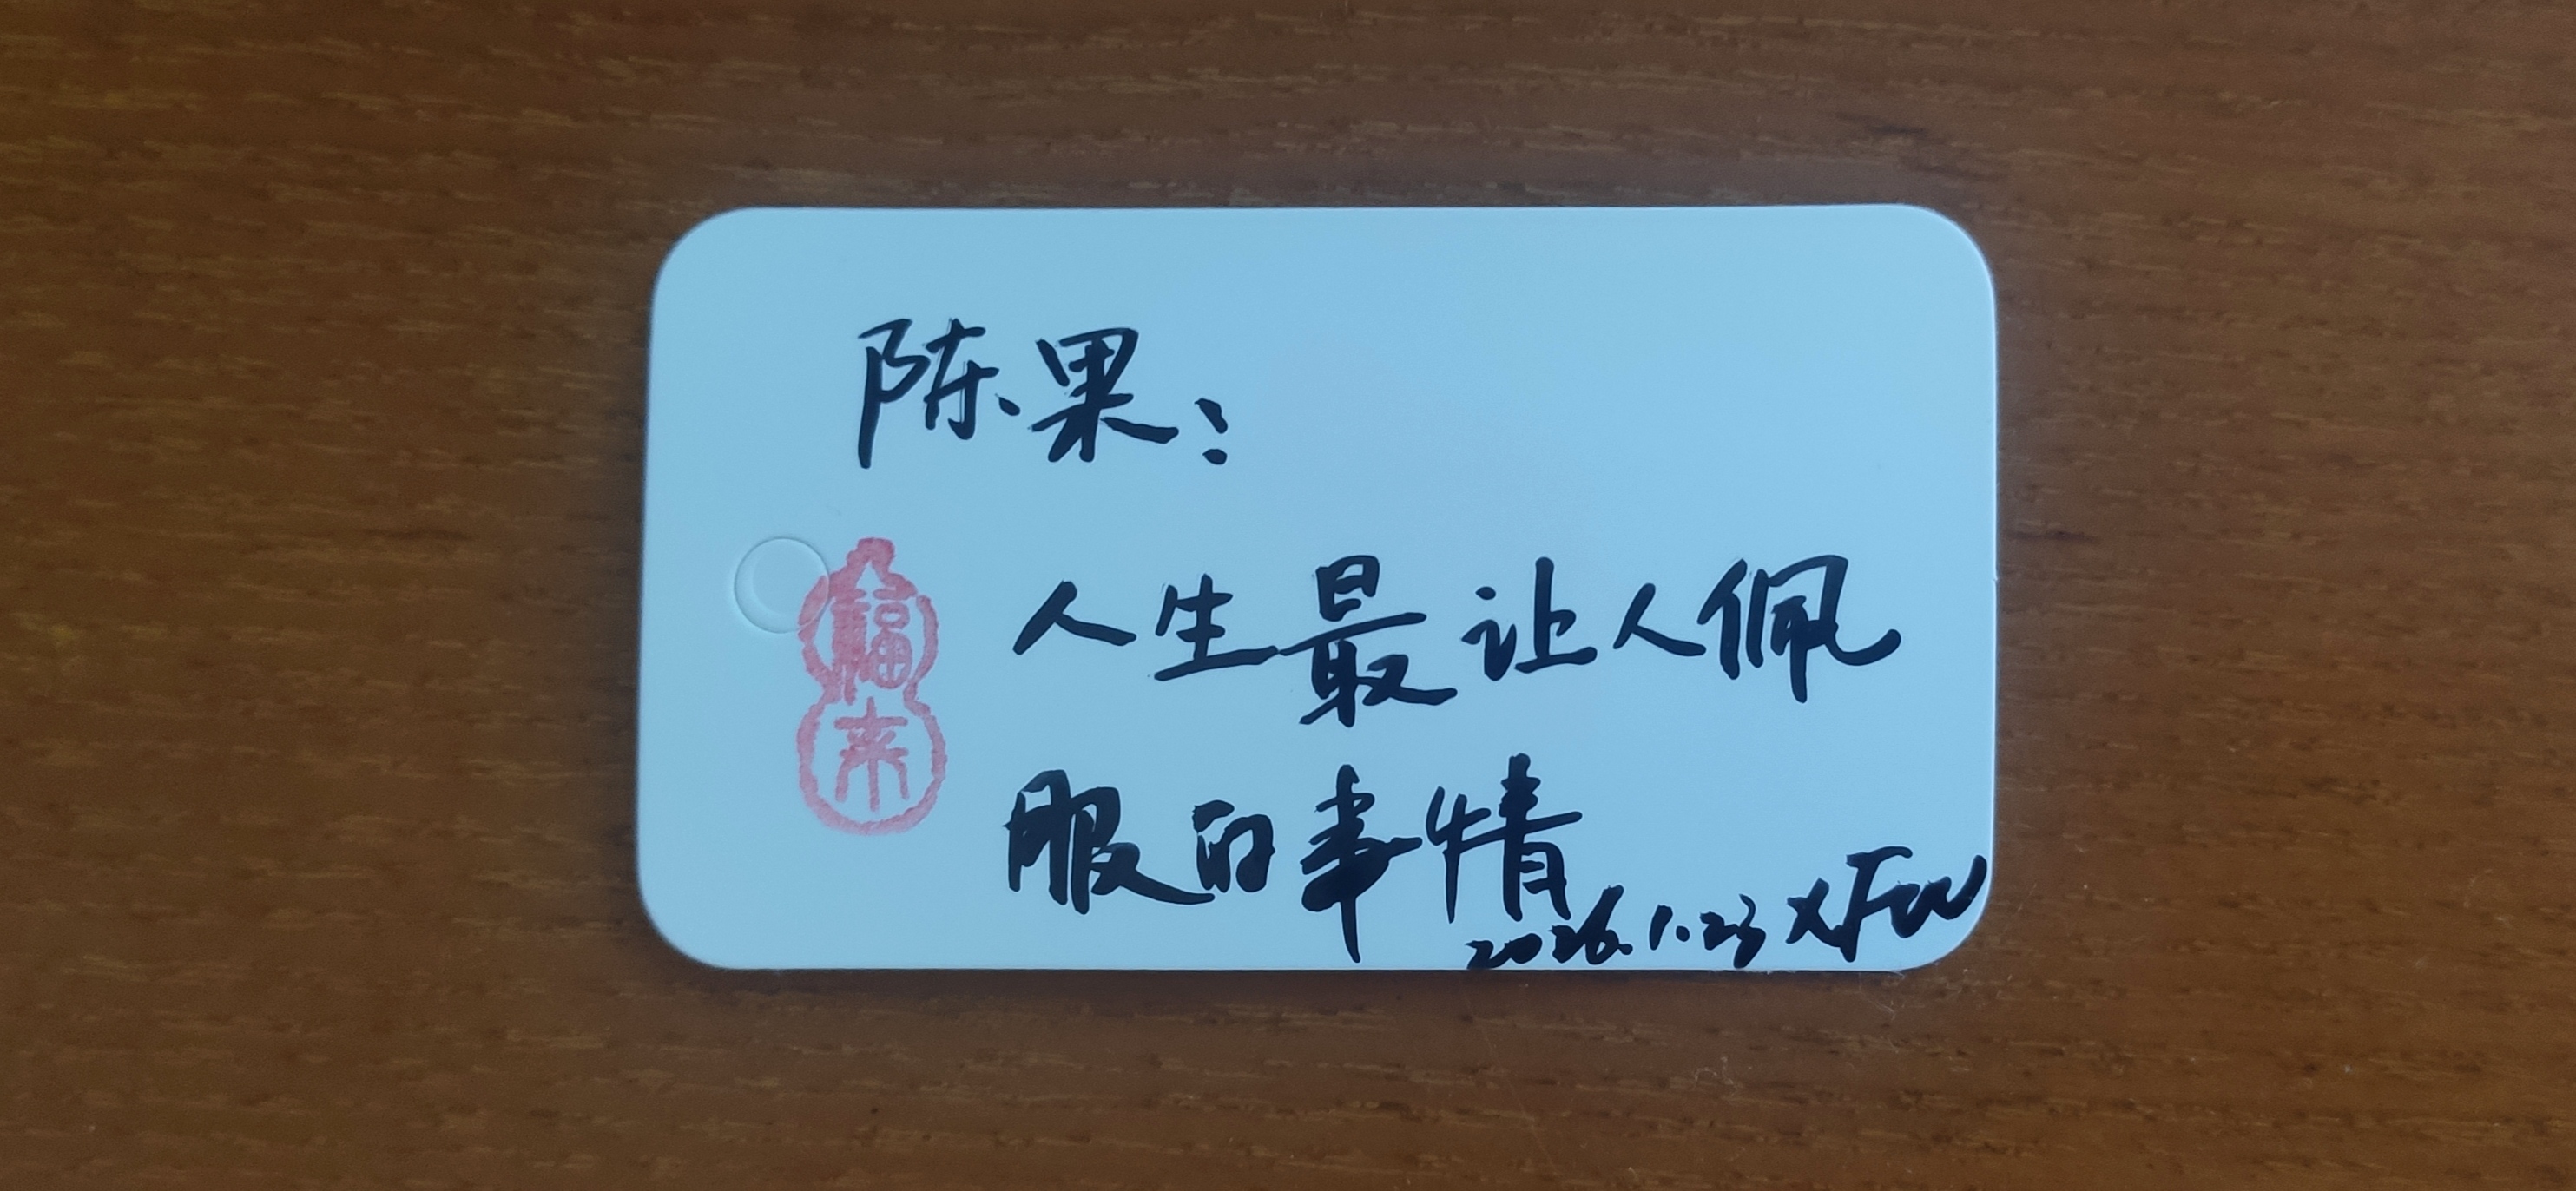 陈果：
福来
人生最让人佩
服的事情
2026.1.23